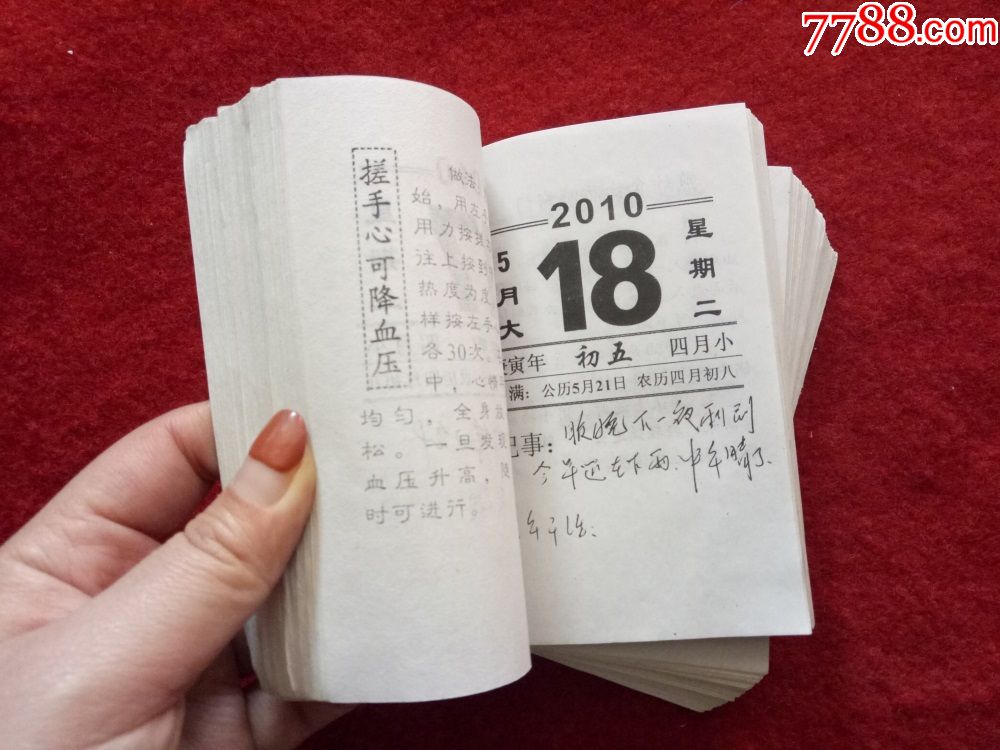 7788.com
搓手心可降血压
[做法]
始，用左手
用力按搓
往上按到
热度为度
样按左手
各30次。
中，心情
均匀，全身放
松。一旦发现
血压升高，随
时可进行。
2010
5月大
18
星期二
庚寅年 初五 四月小
满：公历5月21日 农历四月初八
记事：
今年还在下雨.中午晴了.